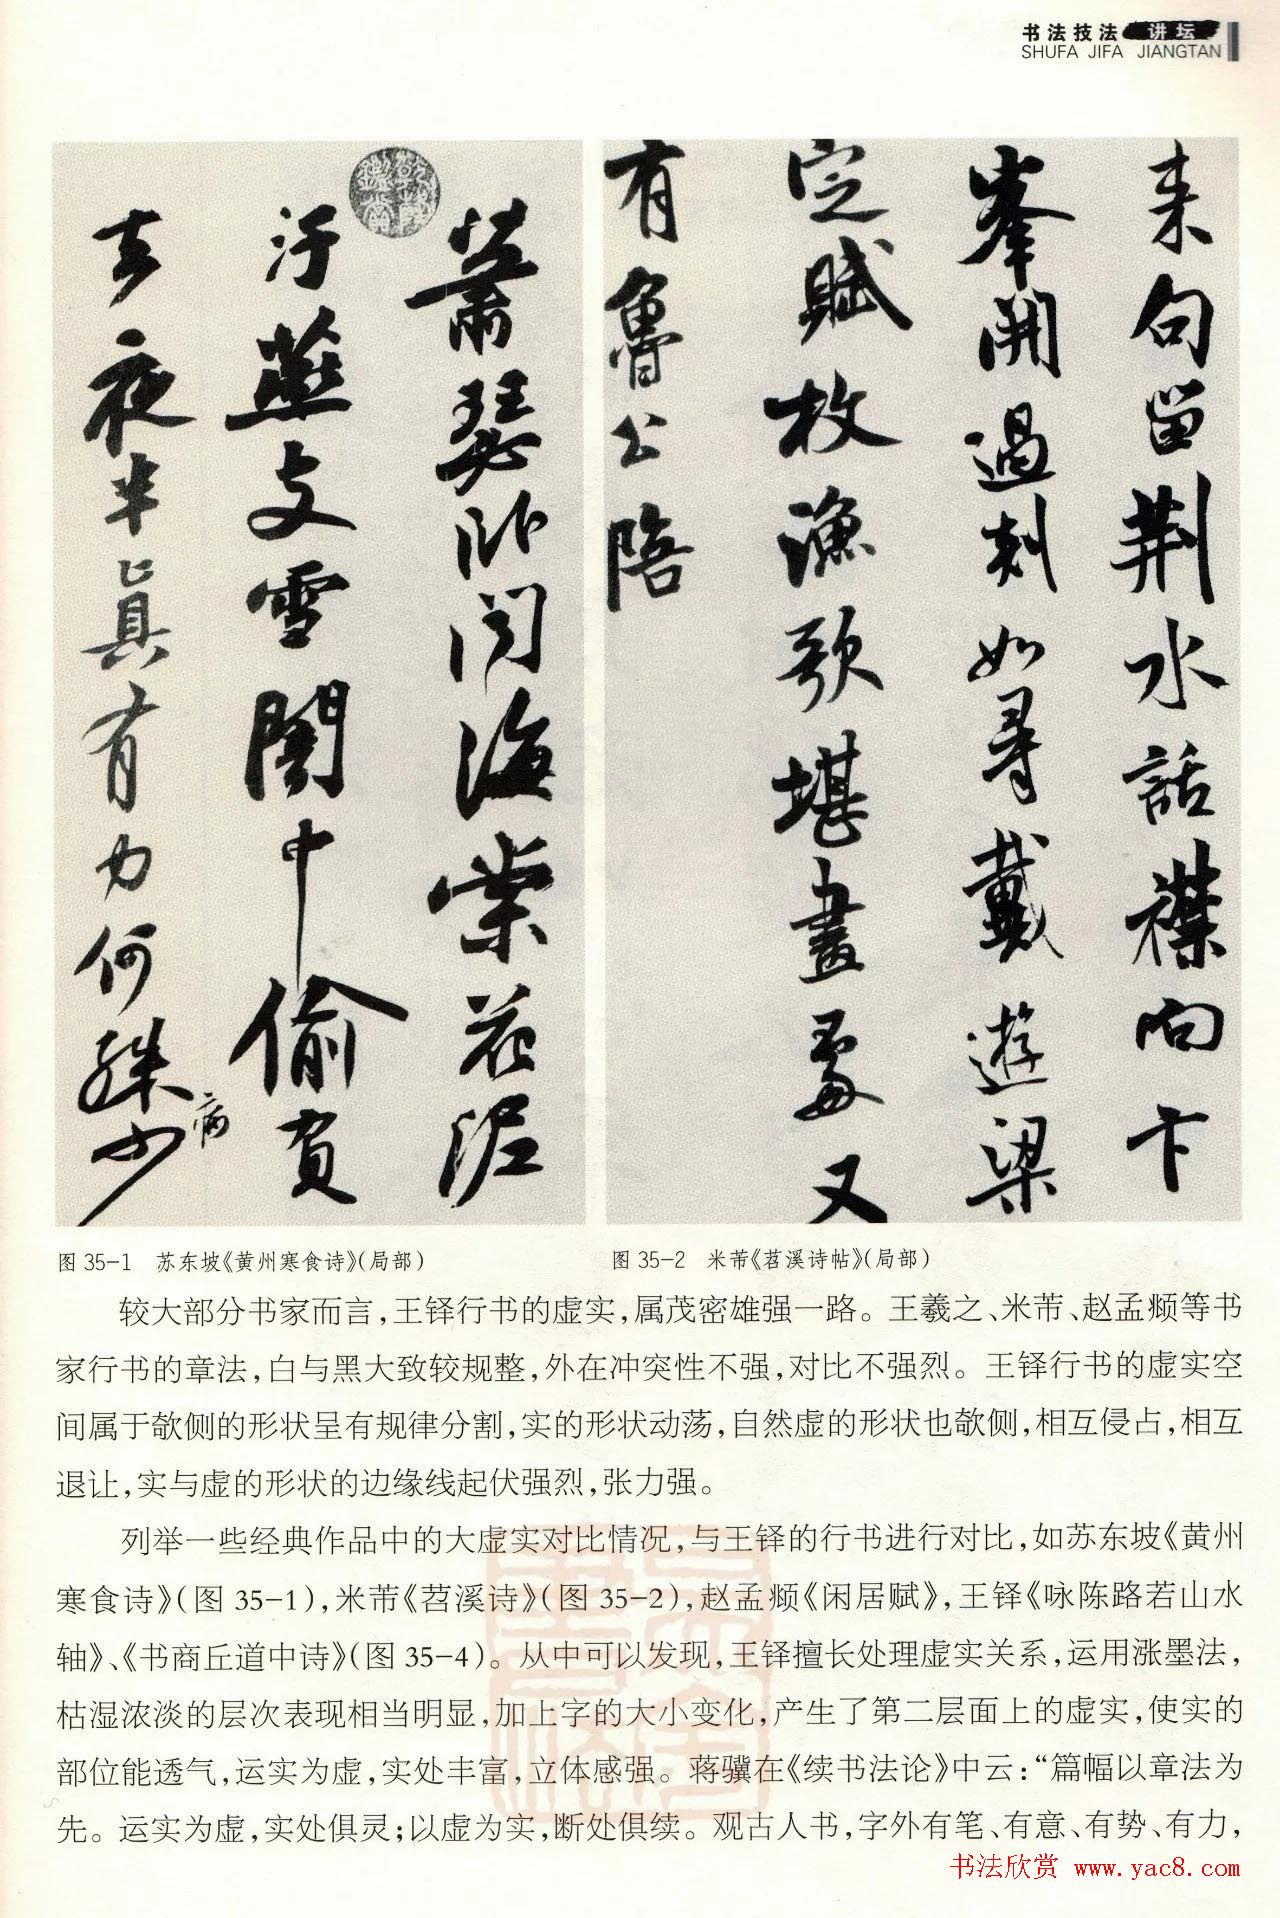 书法技法 讲坛
SHUFA JIFA JIANGTAN
萧瑟卧闻海棠花泥
汙燕支雪闇中偷负
去夜半真有力何殊少
病
来句留荆水话襟向卞
峰开过剡如寻戴游梁
定赋枚渔歌堪画处又
有鲁公陪
图 35-1 苏东坡《黄州寒食诗》(局部)
图 35-2 米芾《苕溪诗帖》(局部)
较大部分书家而言,王铎行书的虚实,属茂密雄强一路。王羲之、米芾、赵孟頫等书
家行书的章法,白与黑大致较规整,外在冲突性不强,对比不强烈。王铎行书的虚实空
间属于欹侧的形状呈有规律分割,实的形状动荡,自然虚的形状也欹侧,相互侵占,相互
退让,实与虚的形状的边缘线起伏强烈,张力强。
列举一些经典作品中的大虚实对比情况,与王铎的行书进行对比,如苏东坡《黄州
寒食诗》(图 35-1),米芾《苕溪诗》(图 35-2),赵孟頫《闲居赋》,王铎《咏陈路若山水
轴》、《书商丘道中诗》(图 35-4)。从中可以发现,王铎擅长处理虚实关系,运用涨墨法,
枯湿浓淡的层次表现相当明显,加上字的大小变化,产生了第二层面上的虚实,使实的
部位能透气,运实为虚,实处丰富,立体感强。蒋骥在《续书法论》中云:“篇幅以章法为
先。运实为虚,实处俱灵;以虚为实,断处俱续。观古人书,字外有笔、有意、有势、有力,
书法欣赏 www.yac8.com